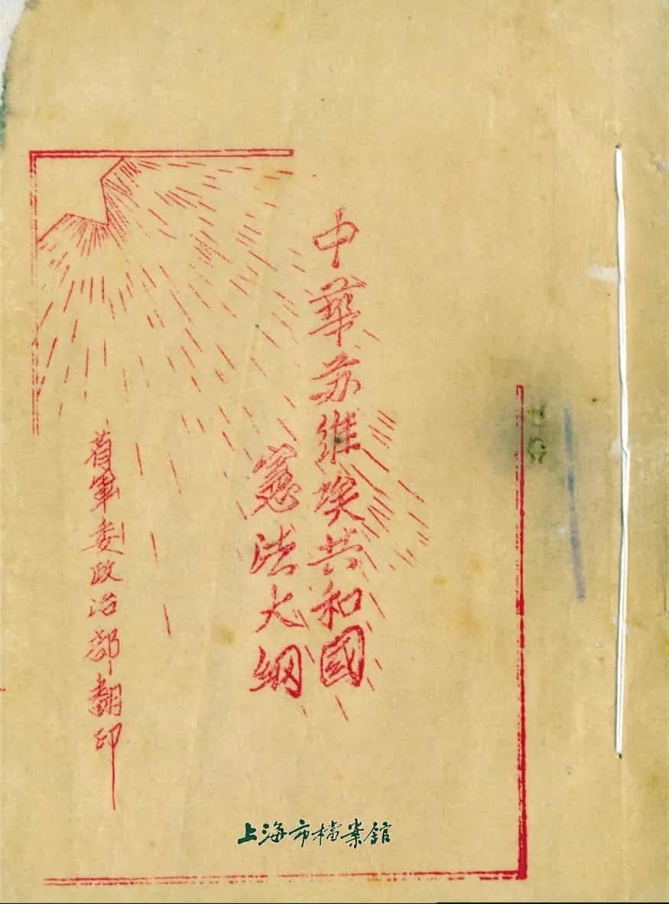 中華苏維埃共和國
憲法大綱
省軍委政治部翻印
上海市檔案館